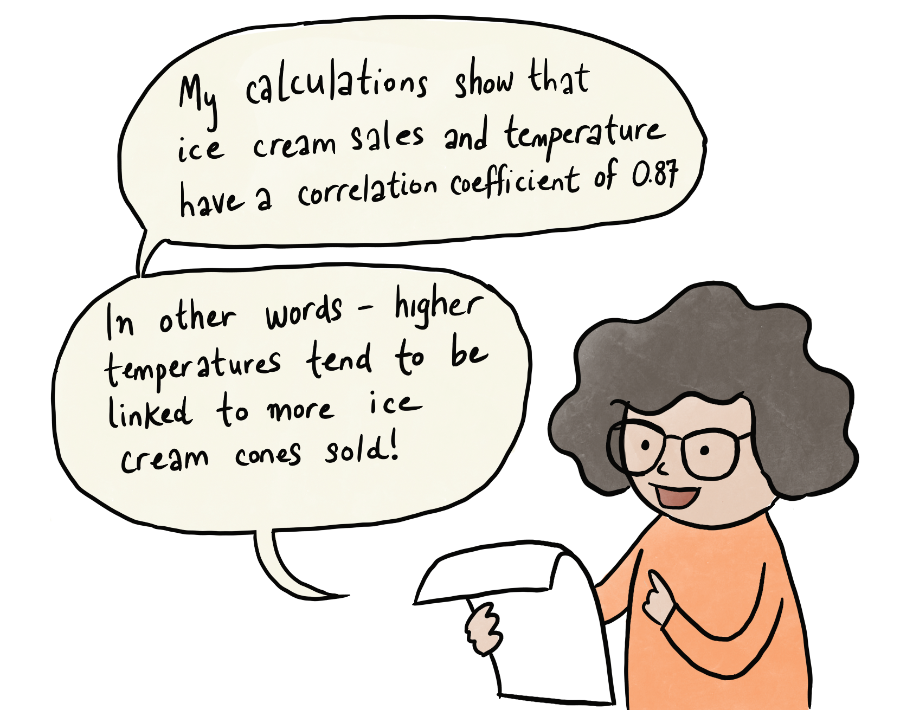 My calculations show that
ice cream sales and temperature
have a correlation coefficient of 0.87
In other words – higher
temperatures tend to be
linked to more ice
cream cones sold!